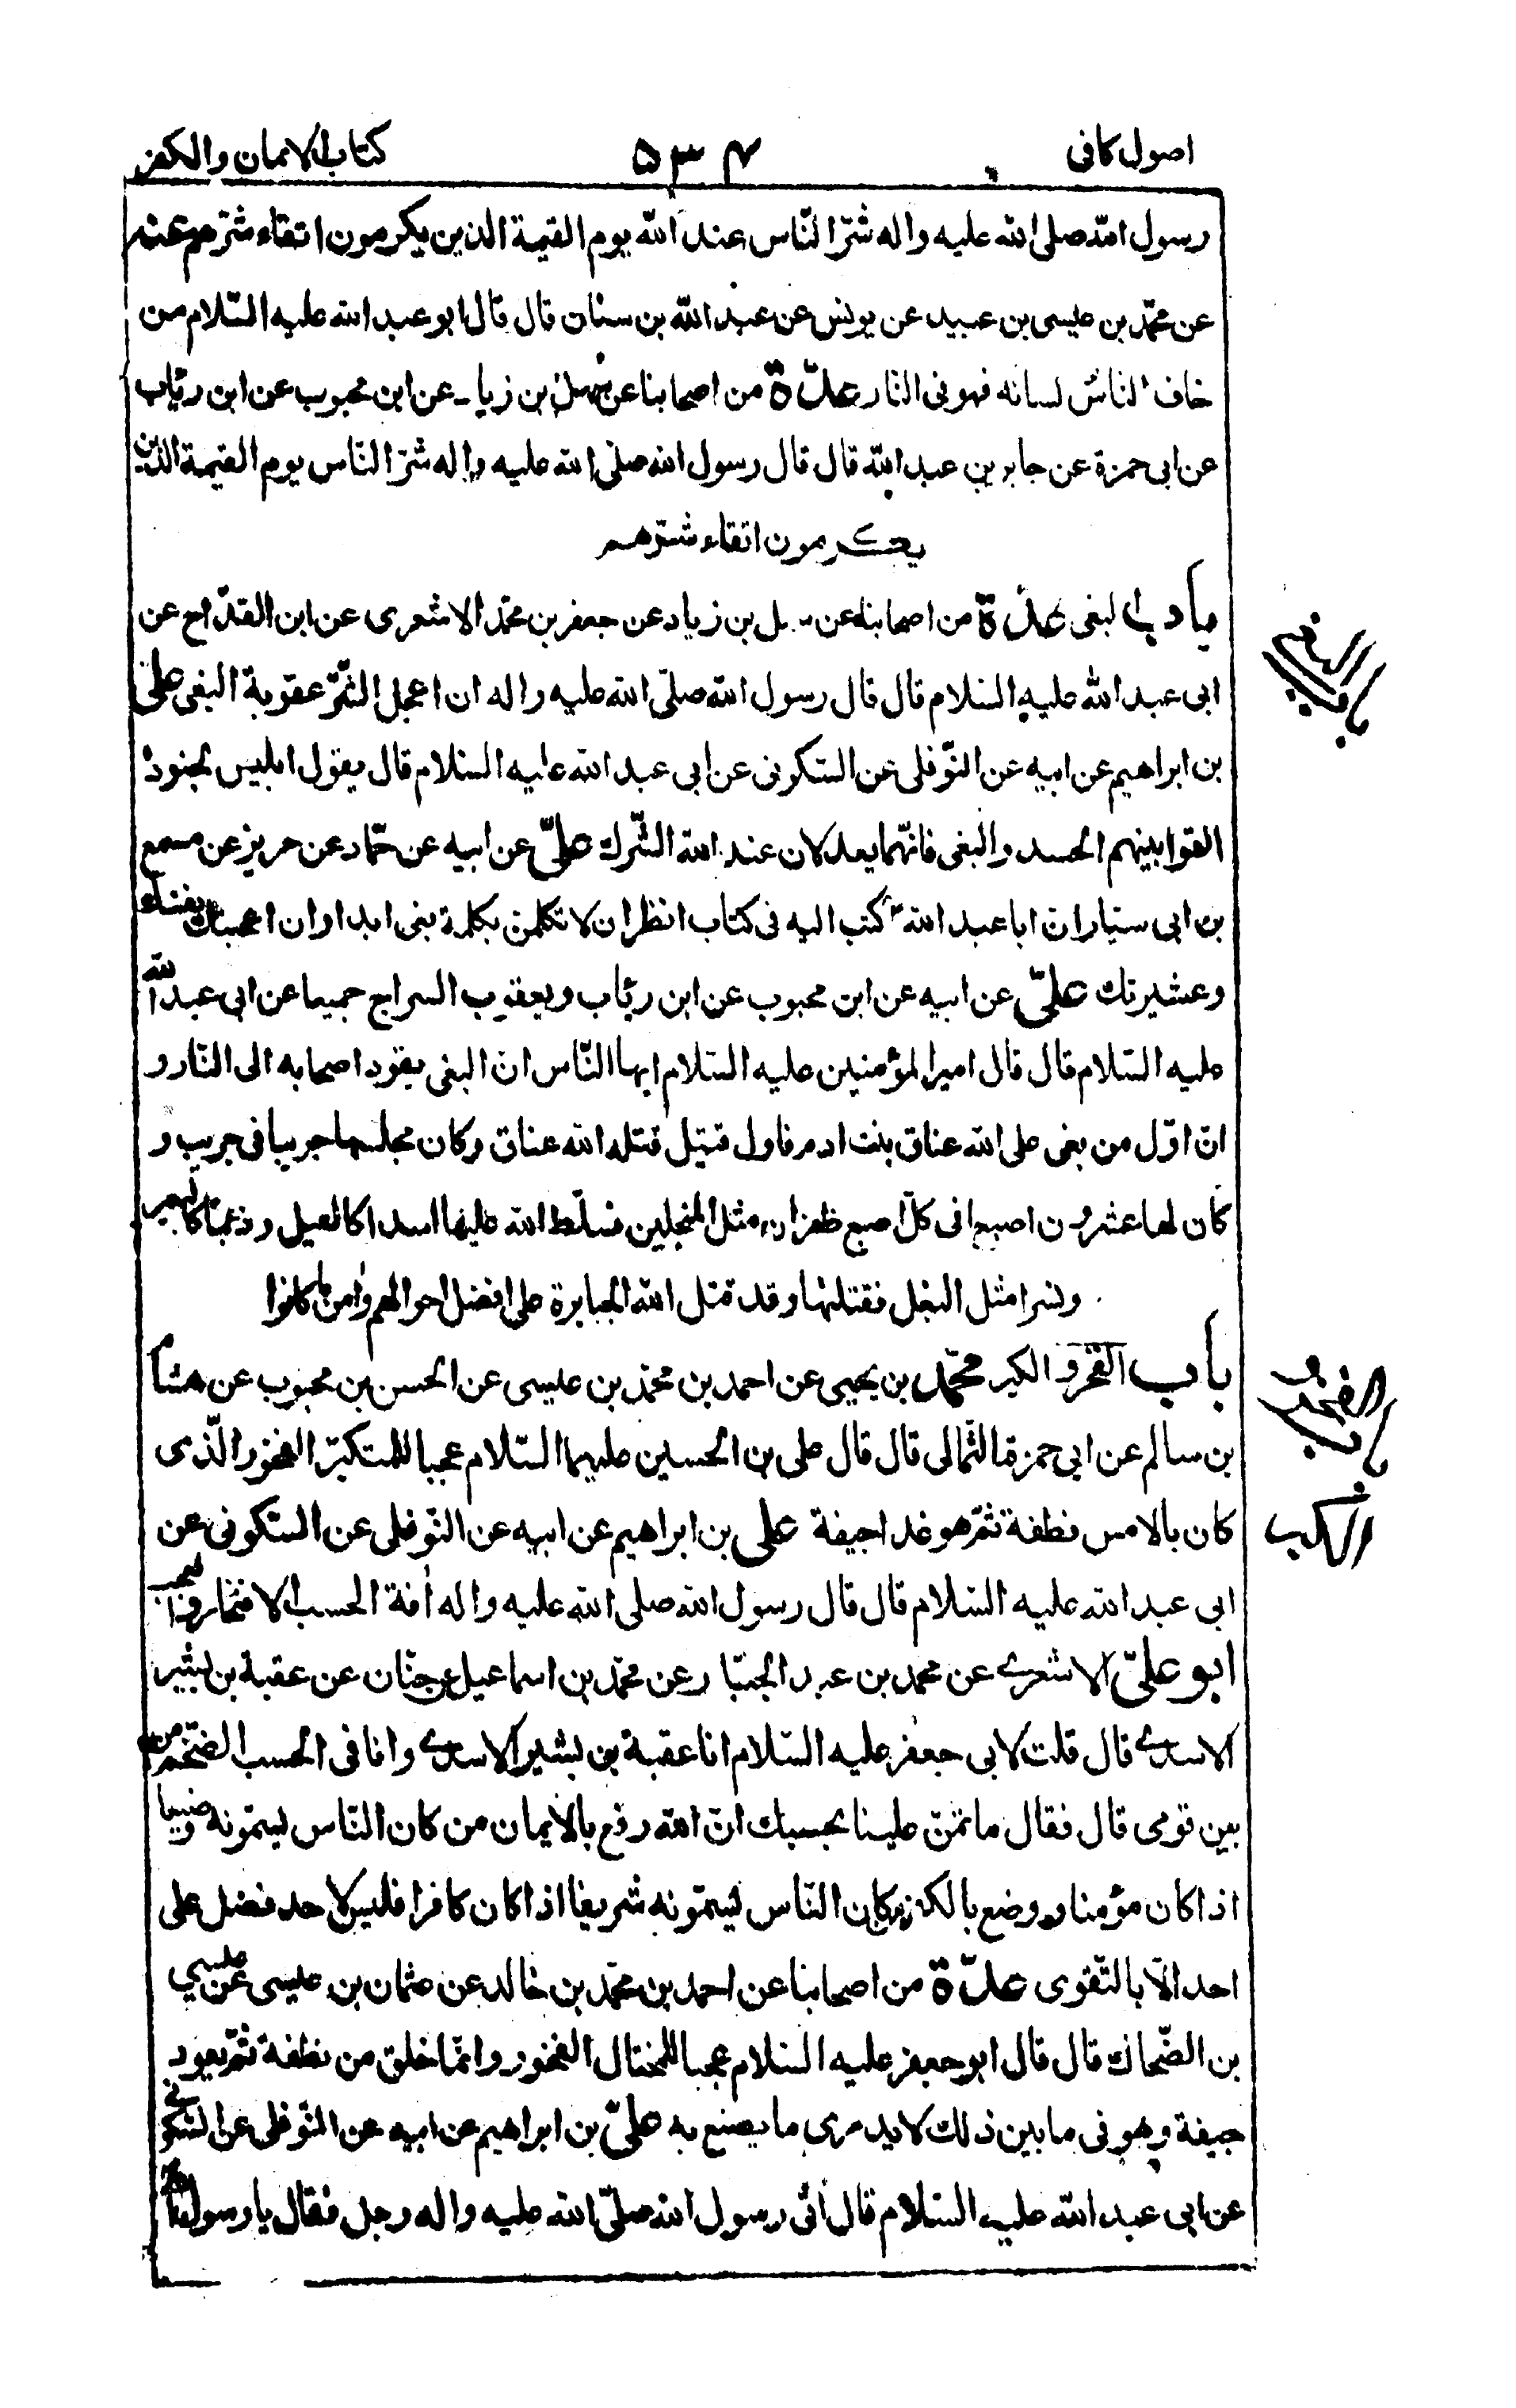 اصول كافى
۵۳۴
كتاب الايمان والكفر
رسول الله صلى الله عليه واله شرّ النّاس عند الله يوم القيمة الذين يكرمون اتقاء شرّهم عنه
عن محمّد بن عيسى بن عبيد عن يونس عن عبد الله بن سنان قال قال ابو عبد الله عليه السّلام من
خاف الناس لسانه فهو فى النار عدّة من اصحابنا عن سهل بن زياد عن ابن محبوب عن ابن رئاب
عن ابى حمزة عن جابر بن عبد الله قال قال رسول الله صلى الله عليه واله شرّ النّاس يوم القيمة الذين
يكرمون اتقاء شرّهم
باب البغى عدّة من اصحابنا عن سهل بن زياد عن جعفر بن محمّد الاشعرى عن ابن القدّاح عن
ابى عبد الله عليه السلام قال قال رسول الله صلّى الله عليه واله ان اعجل الشّرّ عقوبة البغى على
بن ابراهيم عن ابيه عن النّوفلى عن السّكونى عن ابى عبد الله عليه السلام قال يقول ابليس لجنوده
القوا بينهم الحسد والبغى فانّهما يعدلان عند الله الشّرك علىّ عن ابيه عن حمّاد عن حريز عن مسمع
بن ابى سيّار انّ ابا عبد الله ع كتب اليه فى كتاب انظر ان لا تكلمن بكلمة بغى ابدا وان اعجبتك نفسك
وعشيرتك علىّ عن ابيه عن ابن محبوب عن ابن رئاب ويعقوب السراج جميعا عن ابى عبد الله
عليه السّلام قال قال امير المؤمنين عليه السّلام ايها النّاس انّ البغى يقود اصحابه الى النّار و
انّ اوّل من بغى على الله عناق بنت ادم فاول قتيل قتله الله عناق وكان مجلسها جريبا فى جريب و
كان لها عشرون اصبعا فى كلّ اصبع ظفران مثل المنجلين فسلّط الله عليها اسدا كالفيل وذئبا كالبعير
ونسرا مثل البغل فقتلنها وقد قتل الله الجبابرة على افضل احوالهم وامن ما كانوا
باب الفخر والكبر محمّد بن يحيى عن احمد بن محمّد بن عيسى عن الحسن بن محبوب عن هشام
بن سالم عن ابى حمزة الثمالى قال قال على بن الحسين عليهما السّلام عجبا للمتكبّر الفخور الّذى
كان بالامس نطفة ثمّ هو غدا جيفة على بن ابراهيم عن ابيه عن النّوفلى عن السّكونى عن
ابى عبد الله عليه السّلام قال قال رسول الله صلى الله عليه واله افة الحسب الافتخار والعجب
ابو علىّ الاشعرى عن محمد بن عبد الجبّار عن محمّد بن اسماعيل عن حنّان عن عقبة بن بشير
الاسدى قال قلت لابى جعفر عليه السّلام انا عقبة بن بشير الاسدى وانا فى الحسب الضخم من
بين قومى قال فقال ما تمنّ علينا بحسبك انّ الله رفع بالايمان من كان النّاس يسمّونه وضيعا
اذا كان مؤمنا ووضع بالكفر من كان النّاس يسمّونه شريفا اذا كان كافرا فليس لاحد فضل على
احد الّا بالتّقوى عدّة من اصحابنا عن احمد بن محمّد بن خالد عن عثمان بن عيسى عن عيسى
بن الضّحاك قال قال ابو جعفر عليه السلام عجبا للمختال الفخور وانّما خلق من نطفة ثمّ يعود
جيفة وهو فى ما بين ذلك لا يدرى ما يصنع به علىّ بن ابراهيم عن ابيه عن النّوفلى عن السّكونى
عن ابى عبد الله عليه السّلام قال اتى رسول الله صلّى الله عليه واله رجل فقال يا رسول الله
باب البغى
باب الفخر و
الكبر